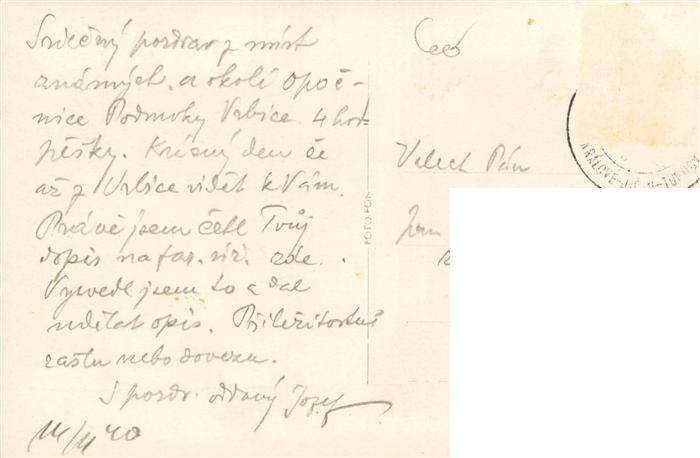 Srdečný pozdrav z míst
známých a okolí Opoč-
nice Podmoky Vrbice 4 hod
pěšky. Krásný den že
až z Vrbice vidět k Vám.
Právě jsem četl Tvůj
dopis na far. úř. zde.
Vyvedl jsem to a dal
udělat opis. Příležitostně
zašlu nebo dovezu.
S pozdr. oddaný Josef
14/II 40
Velect Pán
FOTO FON
KRÁLOVÉ-JIČÍN-TURNOV